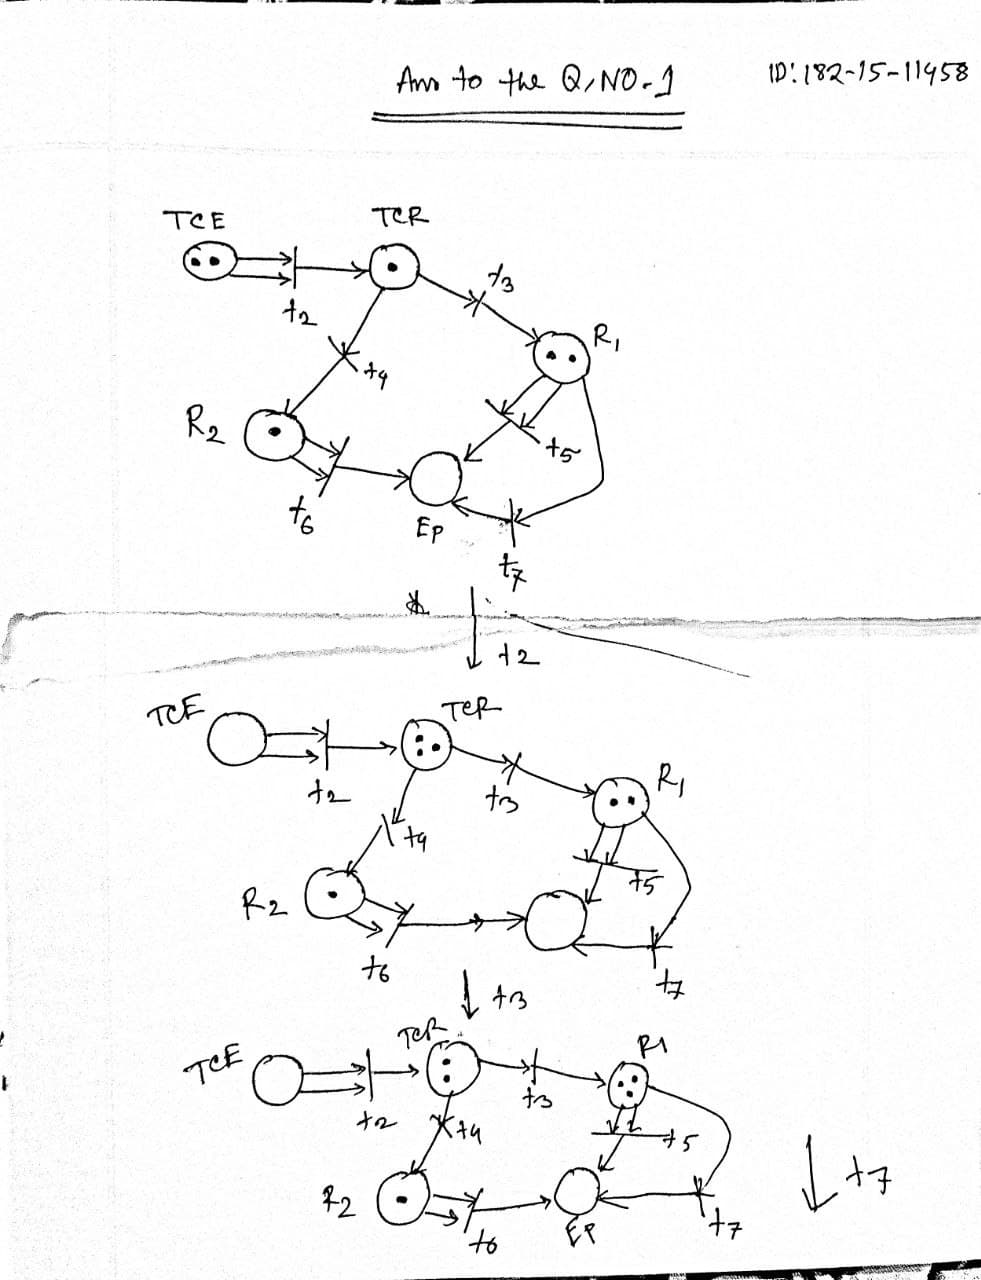 Ans to the Q.NO-1
ID: 182-15-11458
TCE
TCR
t3
t2
R1
t4
R2
t5
t6
Ep
t7
t2
TCE
TCR
t2
t3
R1
t4
t5
R2
t6
t7
t3
TCE
TCR
R1
t2
t3
t4
t5
R2
t6
EP
t7
t7